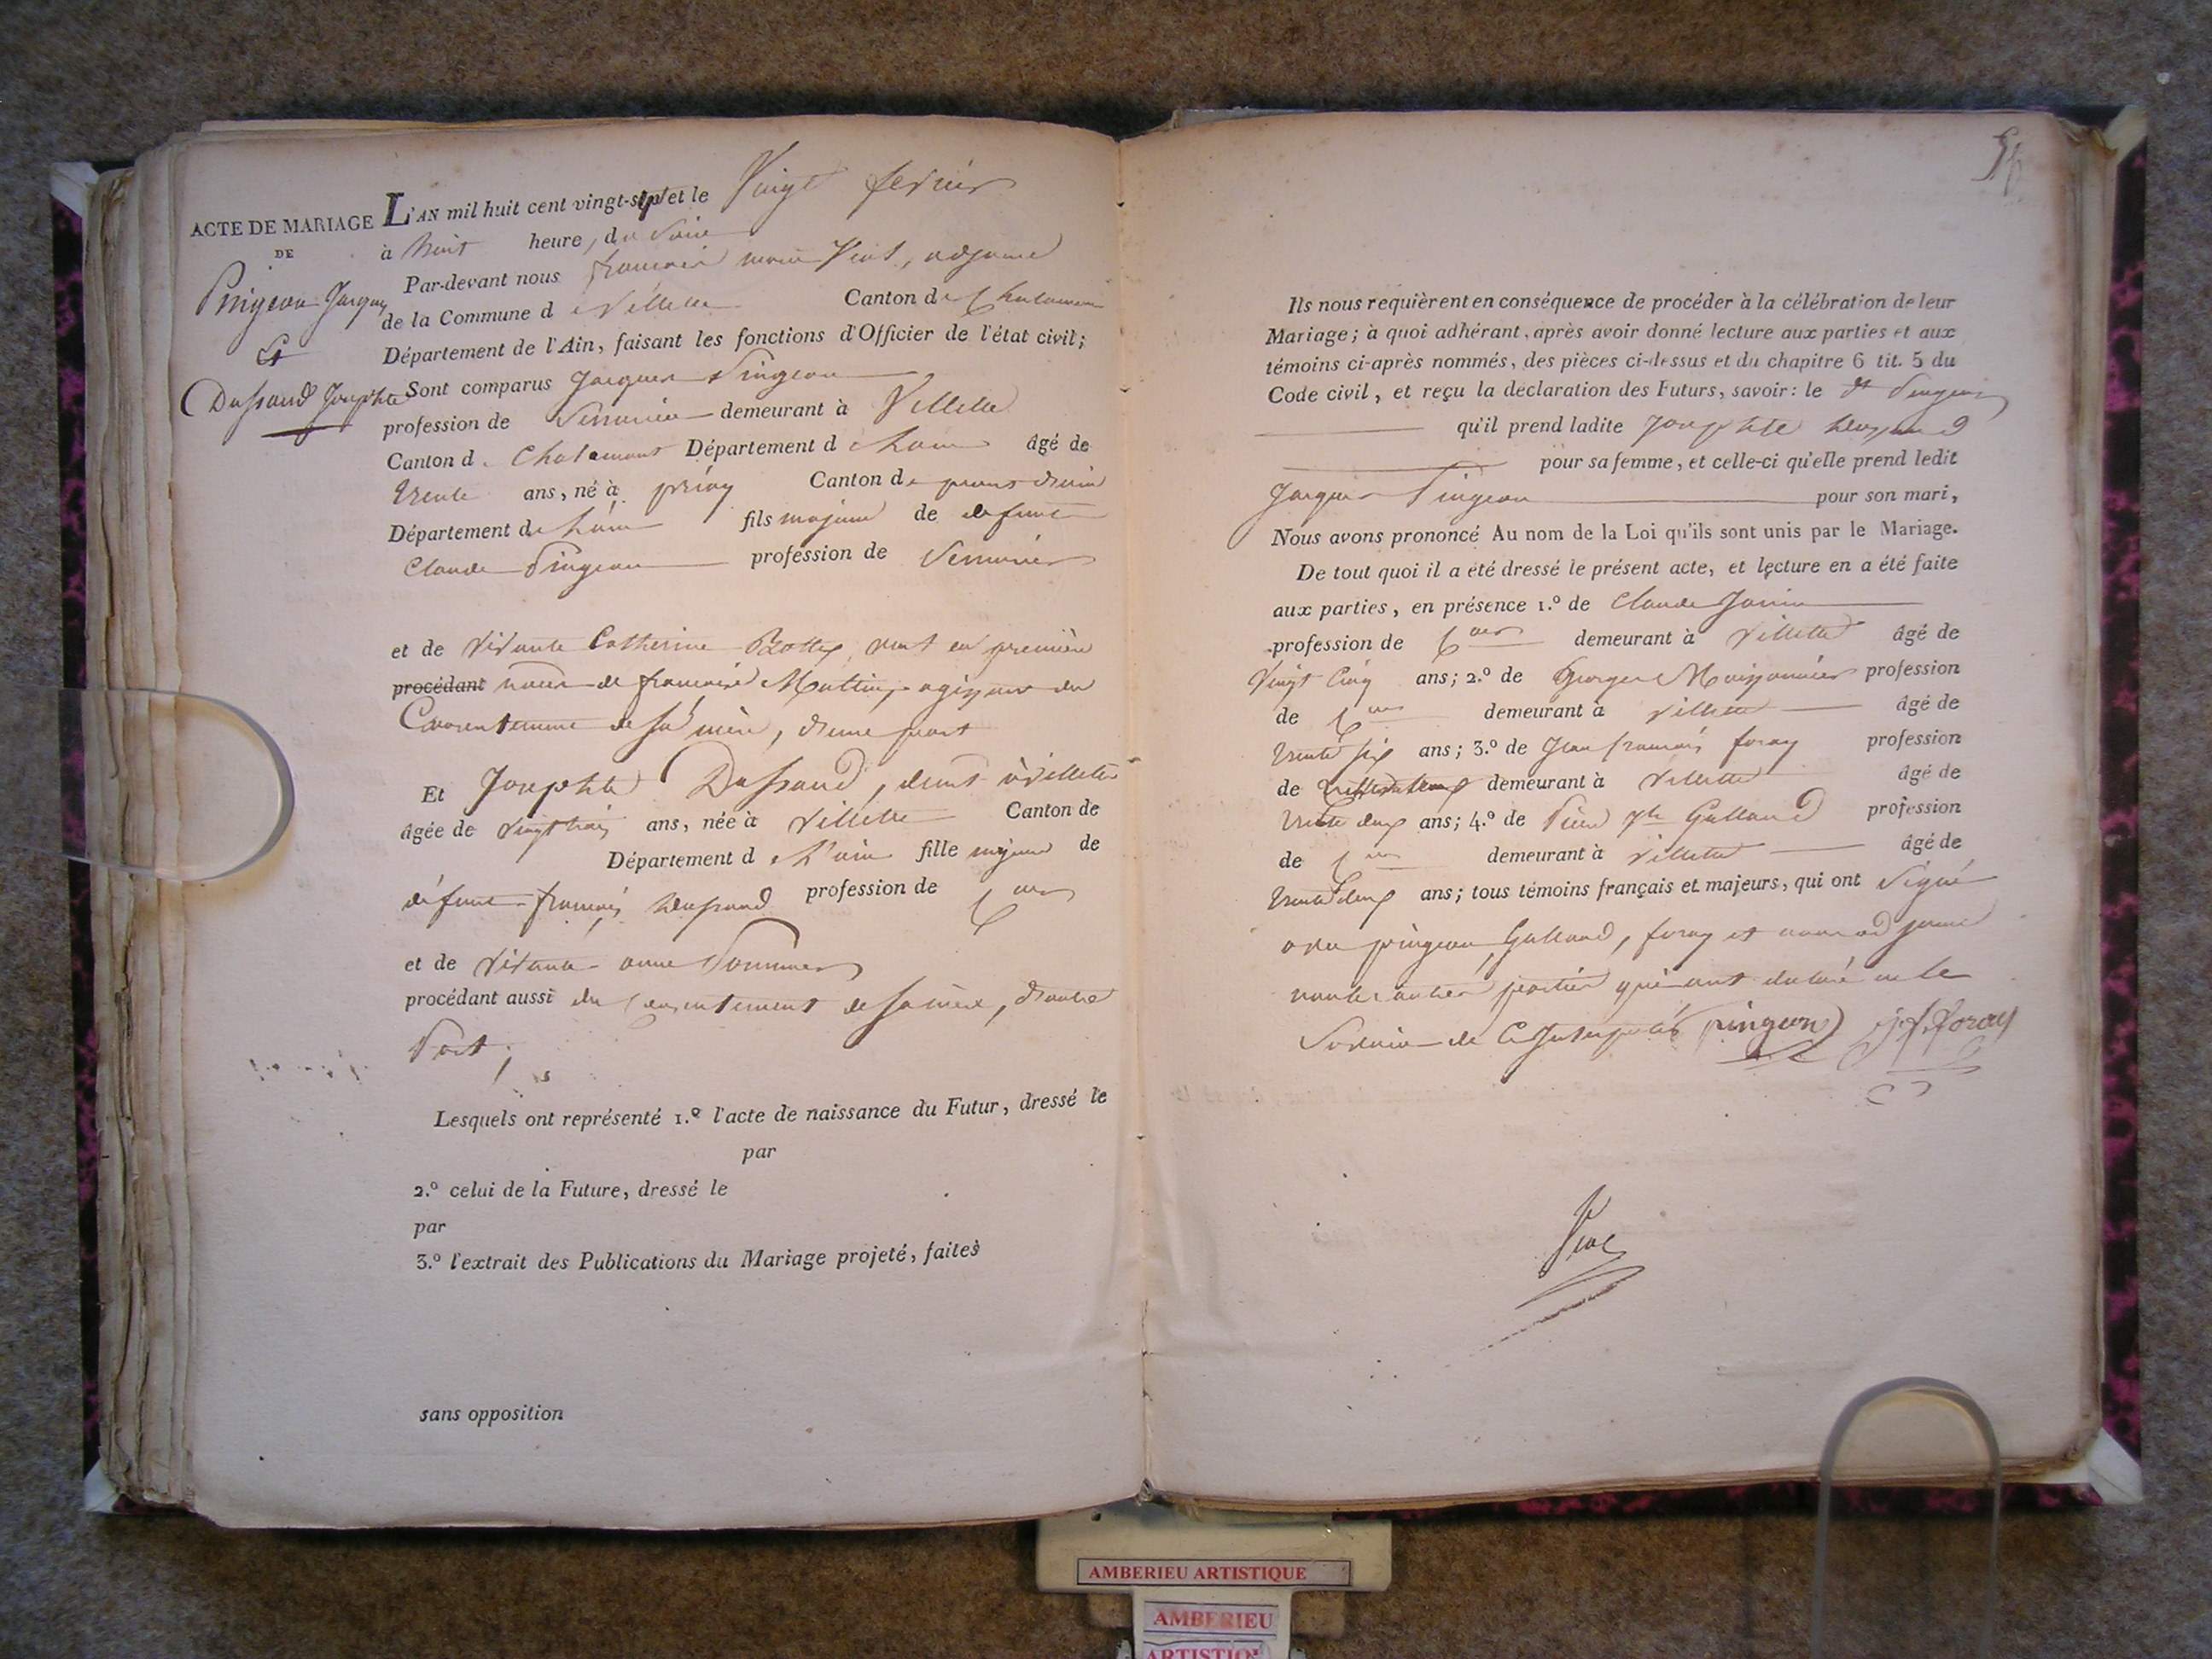 ACTE DE MARIAGE
DE
Pingeon Jacques
Et
Dussaud Josephte
L'AN mil huit cent vingt-sept et le Vingt fevrier
à huit heure, du Soir
Par-devant nous françois marie, adjoint
de la Commune de Villette Canton de Chalamont
Département de l'Ain, faisant les fonctions d'Officier de l'état civil;
Sont comparus Jacques Pingeon
profession de Serrurier demeurant à Villette
Canton de Chalamont Département d âgé de
trente ans, né à priay Canton de pont d'ain
Département de fils majeur de defunt
Claude Pingeon profession de Serrurier
et de vivante Catherine en première
procédant noces de Mattin, agissant du
Consentement de sa mère, d'une part
Et Josephte Dussaud, à villette
âgée de vingt trois ans, née à Villette Canton de
Département de l'ain fille majeure de
défunt françois Dussaud profession de
et de vivante anne Pommier
procédant aussi du Consentement de sa mère, d'autre
Part.
Lesquels ont représenté 1.º l'acte de naissance du Futur, dressé le
par
2.º celui de la Future, dressé le
par
3.º l'extrait des Publications du Mariage projeté, faites
sans opposition
Ils nous requièrent en conséquence de procéder à la célébration de leur
Mariage; à quoi adhérant, après avoir donné lecture aux parties et aux
témoins ci-après nommés, des pièces ci-dessus et du chapitre 6 tit. 5 du
Code civil, et reçu la déclaration des Futurs, savoir: le dt Pingeon
qu'il prend ladite Josephte Dussaud
pour sa femme, et celle-ci qu'elle prend ledit
Jacques Pingeon pour son mari,
Nous avons prononcé Au nom de la Loi qu'ils sont unis par le Mariage.
De tout quoi il a été dressé le présent acte, et lecture en a été faite
aux parties, en présence 1.º de Claude Janin
profession de demeurant à Villette âgé de
Vingt Cinq ans; 2.º de George Maissonnier profession
de demeurant à villette âgé de
trente six ans; 3.º de Jean françois foray profession
de demeurant à Villette âgé de
trente deux ans; 4.º de Galland profession
de demeurant à villette âgé de
trente deux ans; tous témoins français et majeurs, qui ont Signé
avec pingeon, Galland, foray et nous adjoint
autres parties qui ont déclaré ne le
Savoir de Ce Interpellés pingeon j f foray